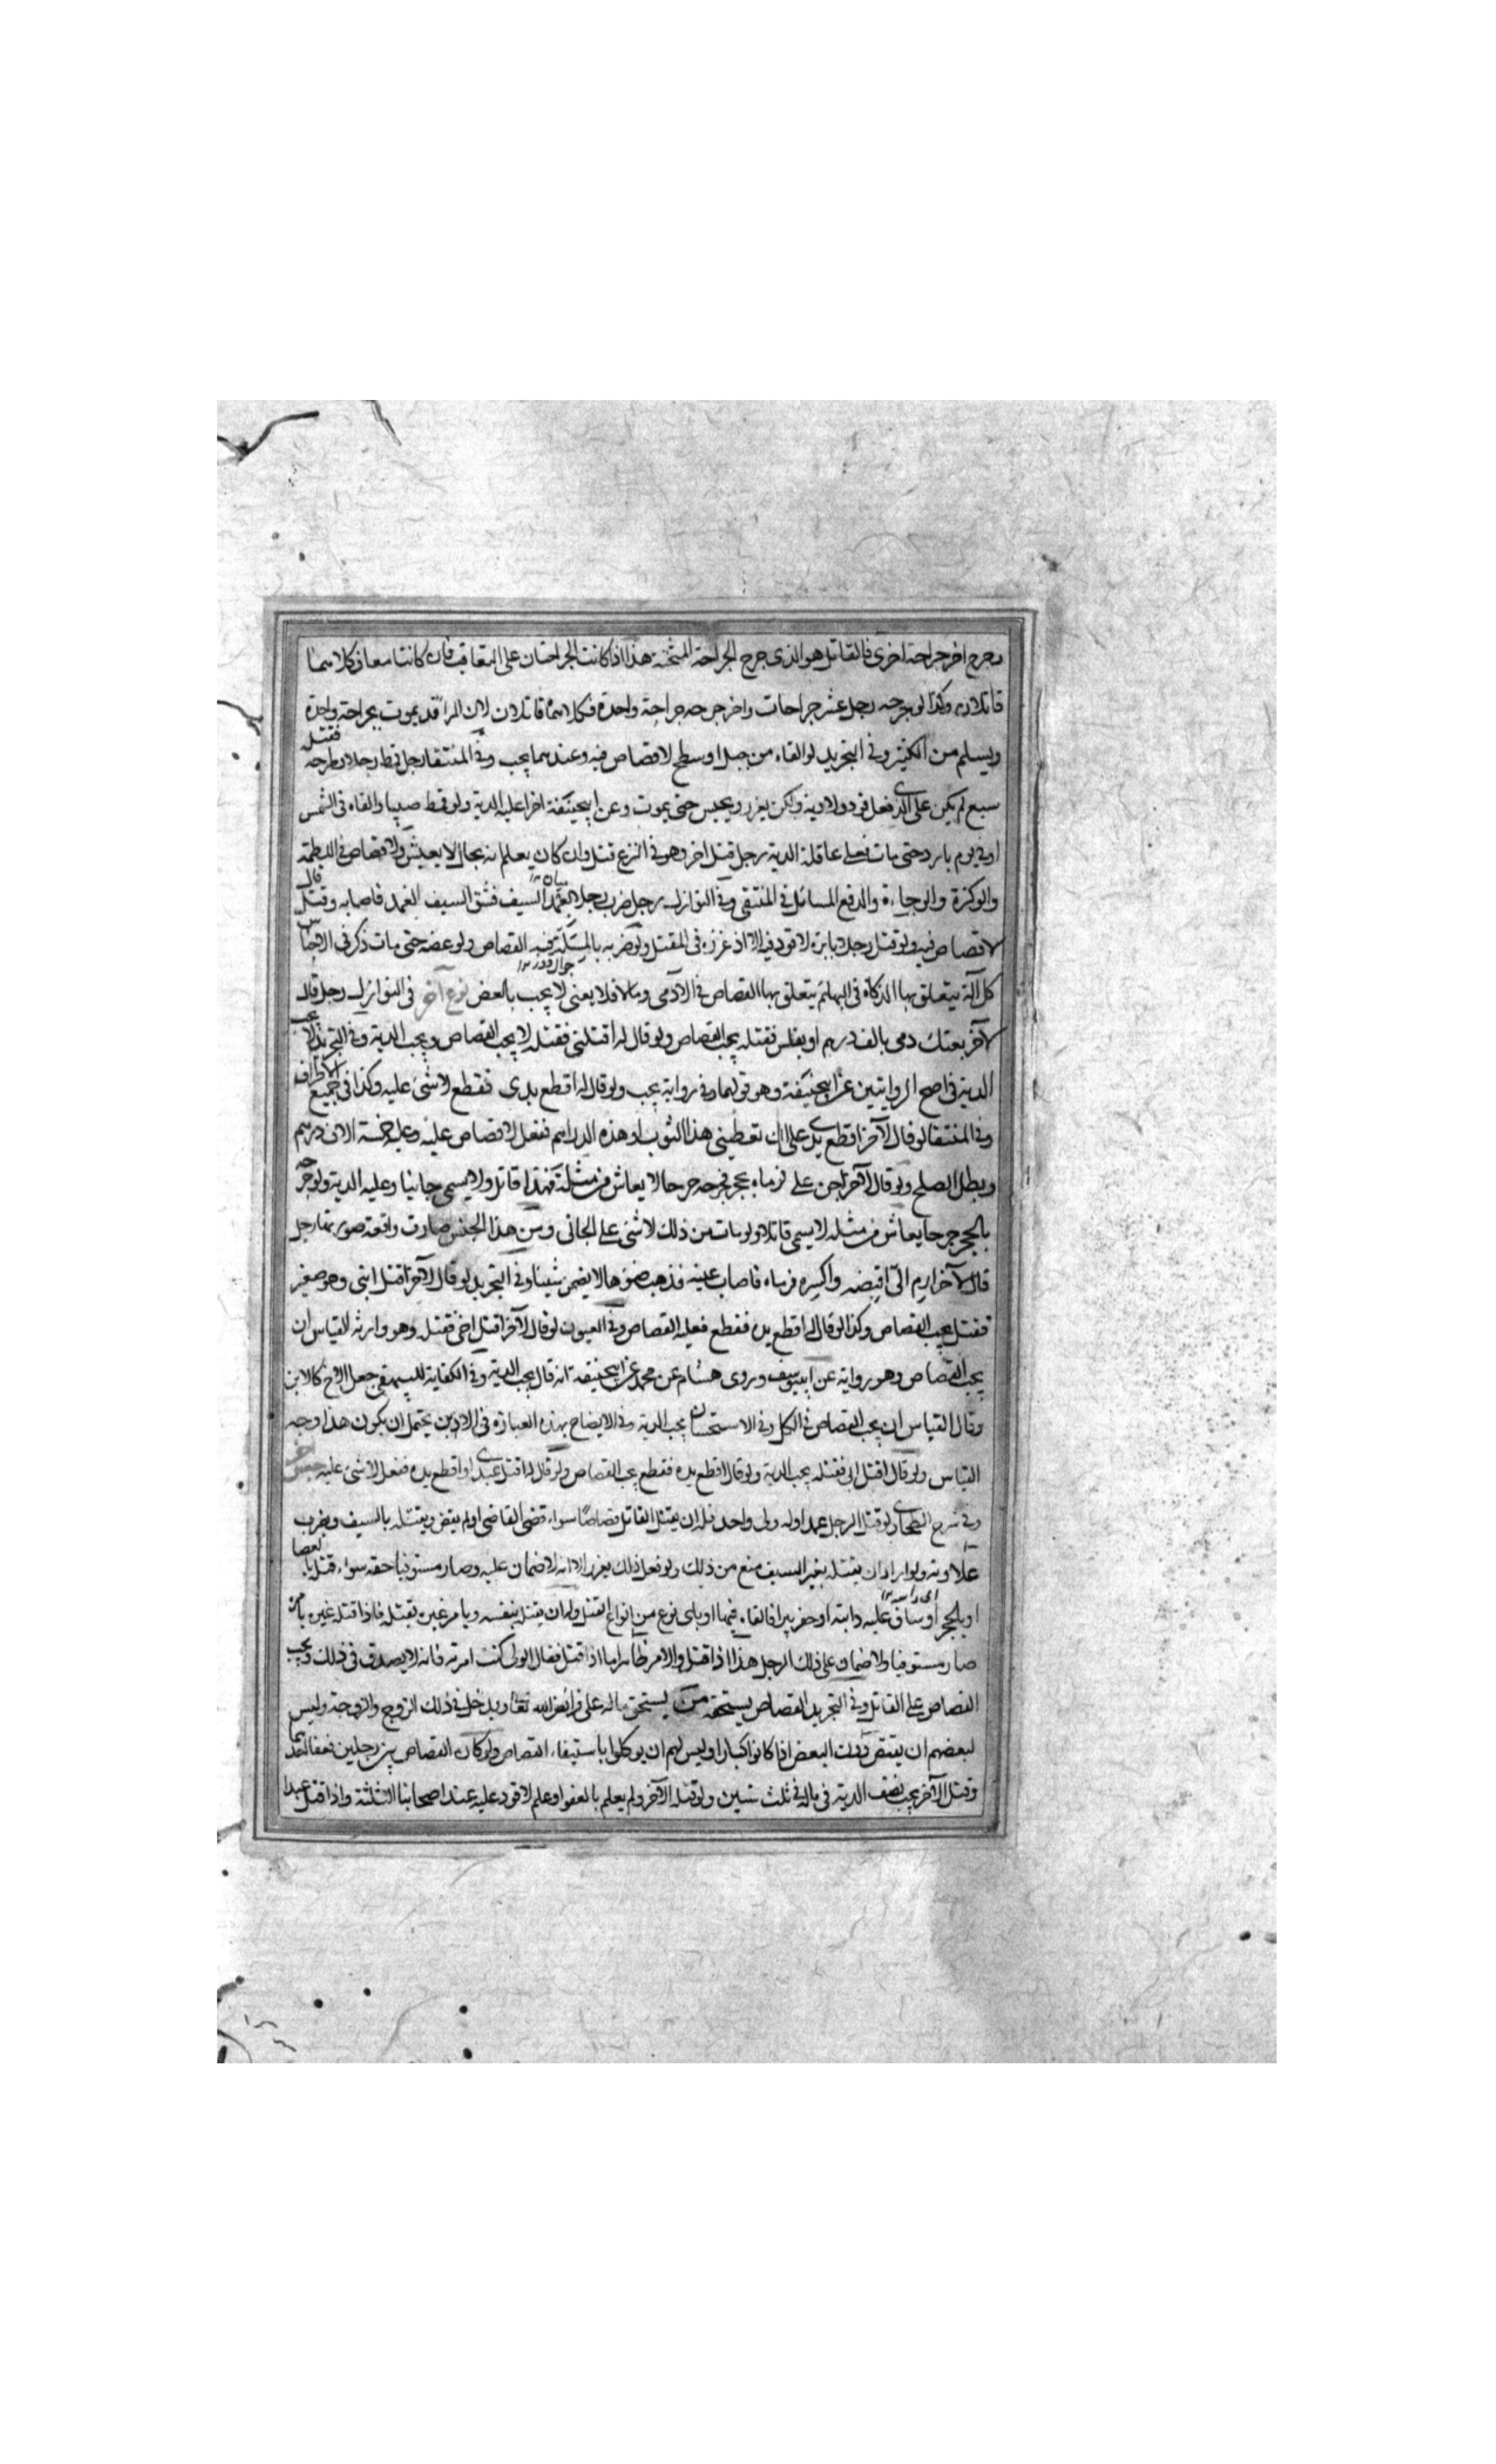 وجرح اخر جراحة اخرى فالقاتل هو الذى جرح الجراحة المثخنة هذا اذا كانت الجراحتان على التعاقب فان كانتا معا فكلاهما
قاتلان وكذا لو جرحه رجل عشر جراحات واخر جرحه جراحة واحدة فكلاهما قاتلان لان المرأ قد يموت بجراحة واحدة
ويسلم من الكثير وفى التجريد لو القاه من جبل او سطح لا قصاص فيه وعندهما يجب وفى المنتقا رجل قمط رجلا وطرحه فقتله
سبع لم يكن على الذى فعل قود ولا دية ولكن يعزر ويحبس حتى يموت وعن ابيحنيفة اخرا عليه الدية ولو قمط صبيا والقاه فى الشمس
او فى يوم بارد حتى مات فعلى عاقلة الدية رجل قتل اخر وهو فى النزع قتل وان كان يعلم انه بحال لا يعيش ولا قصاص فى اللطمة
والوكزة والوجاءة والدفع المسائل فى المنتقى وفى النوازل رجل ضرب رجلا بغمد السيف فشق السيف الغمد فاصابه وقتله قال
لا قصاص فيه ولو قتل رجلا بابرة لا قود فيه الا اذ غرزه فى المقتل ولو ضربه بالمسلة فيه القصاص ولو عضه حتى مات ذكر فى الاجناس
كل آلة يتعلق بها الذكاة فى البهائم يتعلق بها القصاص فى الآدمى وما لا فلا يعنى لا يجب بالعض نوع آخر فى النوازل رجل قال
لآخر بعتك دمى بالف درهم او بفلس فقتله يجب القصاص ولو قال له اقتلنى فقتله لا يجب القصاص ويجب الدية وفى التجريد لا يجب
الدية فى اصح الروايتين عن ابيحنيفة وهو قولهما وفى رواية يجب ولو قال له اقطع يدى فقطع لا شئ عليه وكذا فى جميع الاطراف
وفى المنتقا لو قال لآخر اقطع يدى على ان تعطينى هذا الثوب او هذه الدراهم ففعل لا قصاص عليه وعليه خمسة الاف درهم
وبطل الصلح ولو قال لآخر اجن على فرماه بحجر فجرحه جرحا لا يعاش من مثله فهذا قاتل ولا يسمى جانيا وعليه الدية ولو جرحه
بالحجر جرحا يعاش من مثله لا يسمى قاتلا ولو مات من ذلك لا شئ على الجانى ومن هذا الجنس صارت واقعة صورتها رجل
قال لآخر ارم الى اقبضه واكسره فرماه فاصاب عينه فذهب ضوءها لا يضمن شيئا وفى التجريد لو قال لآخر اقتل ابنى وهو صغير
فقتل يجب القصاص وكذا لو قال له اقطع يده فقطع فعليه القصاص وفى العيون لو قال لآخر اقتل اخى فقتله وهو وارثه القياس ان
يجب القصاص وهو رواية عن ابييوسف وروى هشام عن محمد عن ابيحنيفة انه قال يجب الدية وفى الكفاية للبيهقى جعل الاخ كالابن
وقال القياس ان يجب القصاص فى الكل وفى الاستحسان يجب الدية وفى الايضاح بهذه العبارة فى الاذين يحتمل ان يكون هذا وجه
القياس ولو قال اقتل ابى فقتله يجب الدية ولو قال اقطع يده فقطع يجب القصاص ولو قال له اقتل عبدى او اقطع يده ففعل لا شئ عليه جنس آخر
وفى شرح الطحاوى لو قتل الرجل عمدا وله ولى واحد فله ان يقتل القاتل قصاصا سواء قضى القاضى او لم يقض ويقتله بالسيف ويضرب
علاوته ولو اراد ان يقتله بغير السيف منع من ذلك ولو فعل ذلك يعزر الا انه لا ضمان عليه وصار مستوفيا حقه سواء قتل بالعصا
او بالحجر او ساق عليه دابته او حفر بيرا فالقاه فيها او باى نوع من انواع القتل وله ان يقتل بنفسه ويامر غيره بقتله فاذا قتله غيره بامره
صار مستوفيا ولا ضمان على ذلك الرجل هذا اذا قتل والامر ظاهر اما اذا قتل فقال الولى كنت امرته فانه لا يصدق فى ذلك ويجب
القصاص على القاتل وفى التجريد القصاص يستحقه من يستحق ماله على فرائض الله تعا ويدخل فى ذلك الزوج والزوجة وليس
لبعضهم ان يقتص دون البعض اذا كانوا كبارا وليس لهم ان يوكلوا باستيفاء القصاص ولو كان القصاص بين رجلين فعفا احدهما
وقتل الآخر يجب نصف الدية فى ماله فى ثلث سنين ولو قتله الآخر ولم يعلم بالعفو او علم لا قود عليه عند اصحابنا الثلثة واذا قتل عبدا